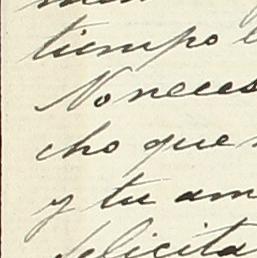 tiempo
No neces
cho que
y tu am
felicita